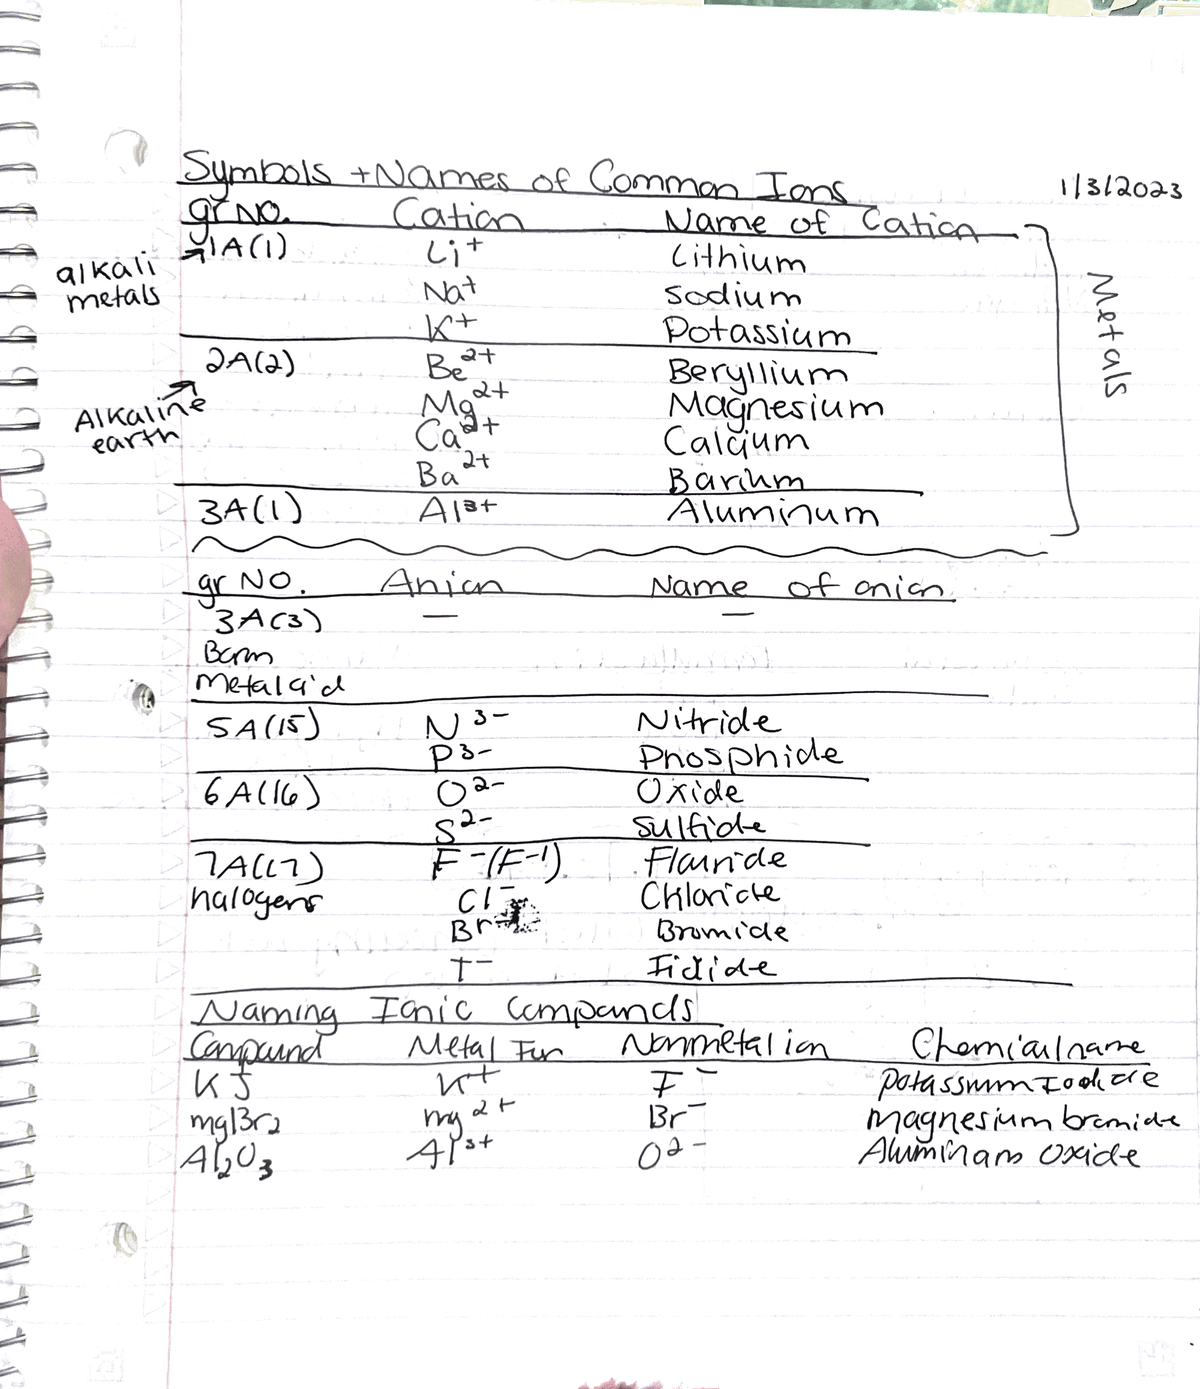 Symbols + Names of Common Ions
1/3/2023
gr NO. Cation Name of Cation
alkali metals
1A(1) Li+ Lithium
Na+ Sodium
K+ Potassium
Metals
2A(2) Be2+ Beryllium
Alkaline earth
Mg2+ Magnesium
Ca2+ Calcium
Ba2+ Barium
3A(1) Al3+ Aluminum
gr NO. Anion Name of anion
3A(3) — —
Boron
Metaloid
5A(15) N3- Nitride
P3- Phosphide
6A(16) O2- Oxide
S2- Sulfide
7A(17) F-(F-1) Flouride
halogens Cl- Chloride
Br- Bromide
I- Iodide
Naming Ionic Compounds
Compound Metal Ion Nonmetal ion Chemical name
KI K+ I- Potassium Iodide
MgBr2 Mg2+ Br- Magnesium bromide
Al2O3 Al3+ O2- Aluminum Oxide